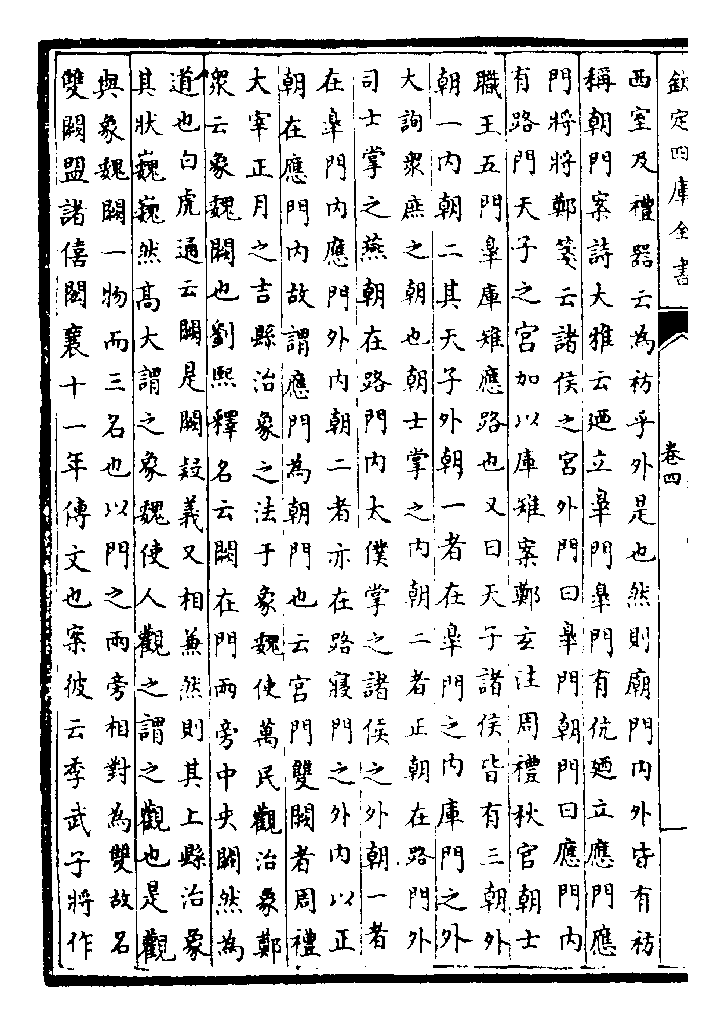 欽定四庫全書
卷四
西室及禮器云為祊乎外是也然則廟門内外皆有祊
稱朝門案詩大雅云廼立臯門臯門有伉廼立應門應
門將將鄭箋云諸侯之宫外門曰臯門朝門曰應門内
有路門天子之宫加以庫雉案鄭玄注周禮秋官朝士
職王五門臯庫雉應路也又曰天子諸侯皆有三朝外
朝一内朝二其天子外朝一者在臯門之内庫門之外
大詢衆庶之朝也朝士掌之内朝二者正朝在路門外
司士掌之燕朝在路門内太僕掌之諸侯之外朝一者
在臯門内應門外内朝二者亦在路寢門之外内以正
朝在應門内故謂應門為朝門也云宫門雙闕者周禮
大宰正月之吉縣治象之法于象魏使萬民觀治象鄭
衆云象魏闕也劉熙釋名云闕在門兩旁中央闕然為
道也白虎通云闕是闕疑義又相兼然則其上縣治象
其狀巍巍然髙大謂之象魏使人觀之謂之觀也是觀
與象魏闕一物而三名也以門之兩旁相對為雙故名
雙闕盟諸僖閎襄十一年傳文也案彼云季武子將作